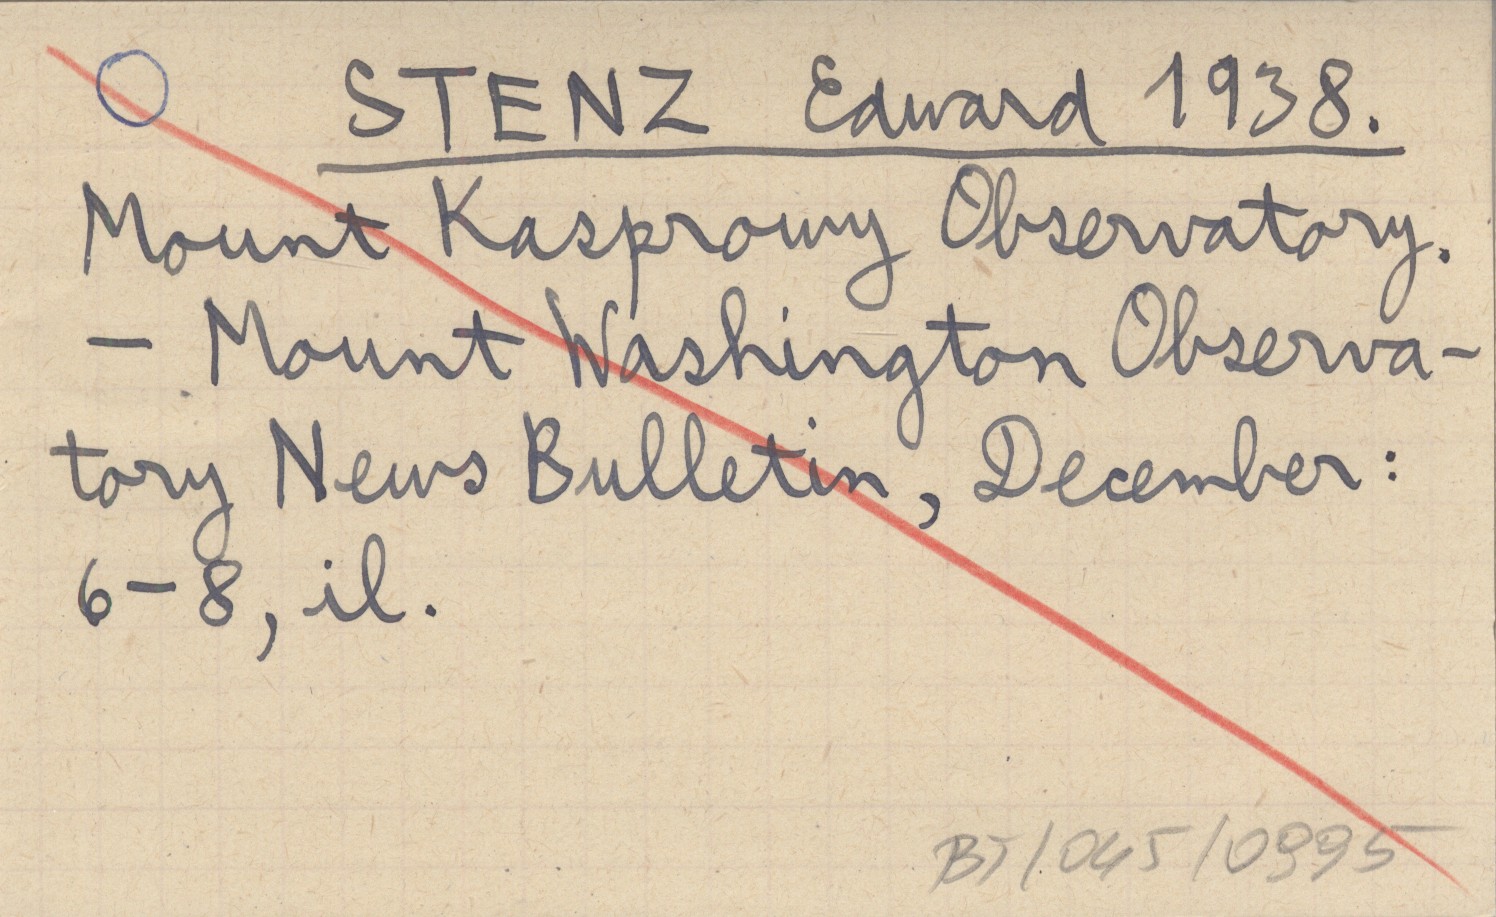 STENZ Edward 1938.
Mount Kasprowy Observatory.
– Mount Washington Observa-
tory News Bulletin, December:
6–8, il.
BT/045/0995